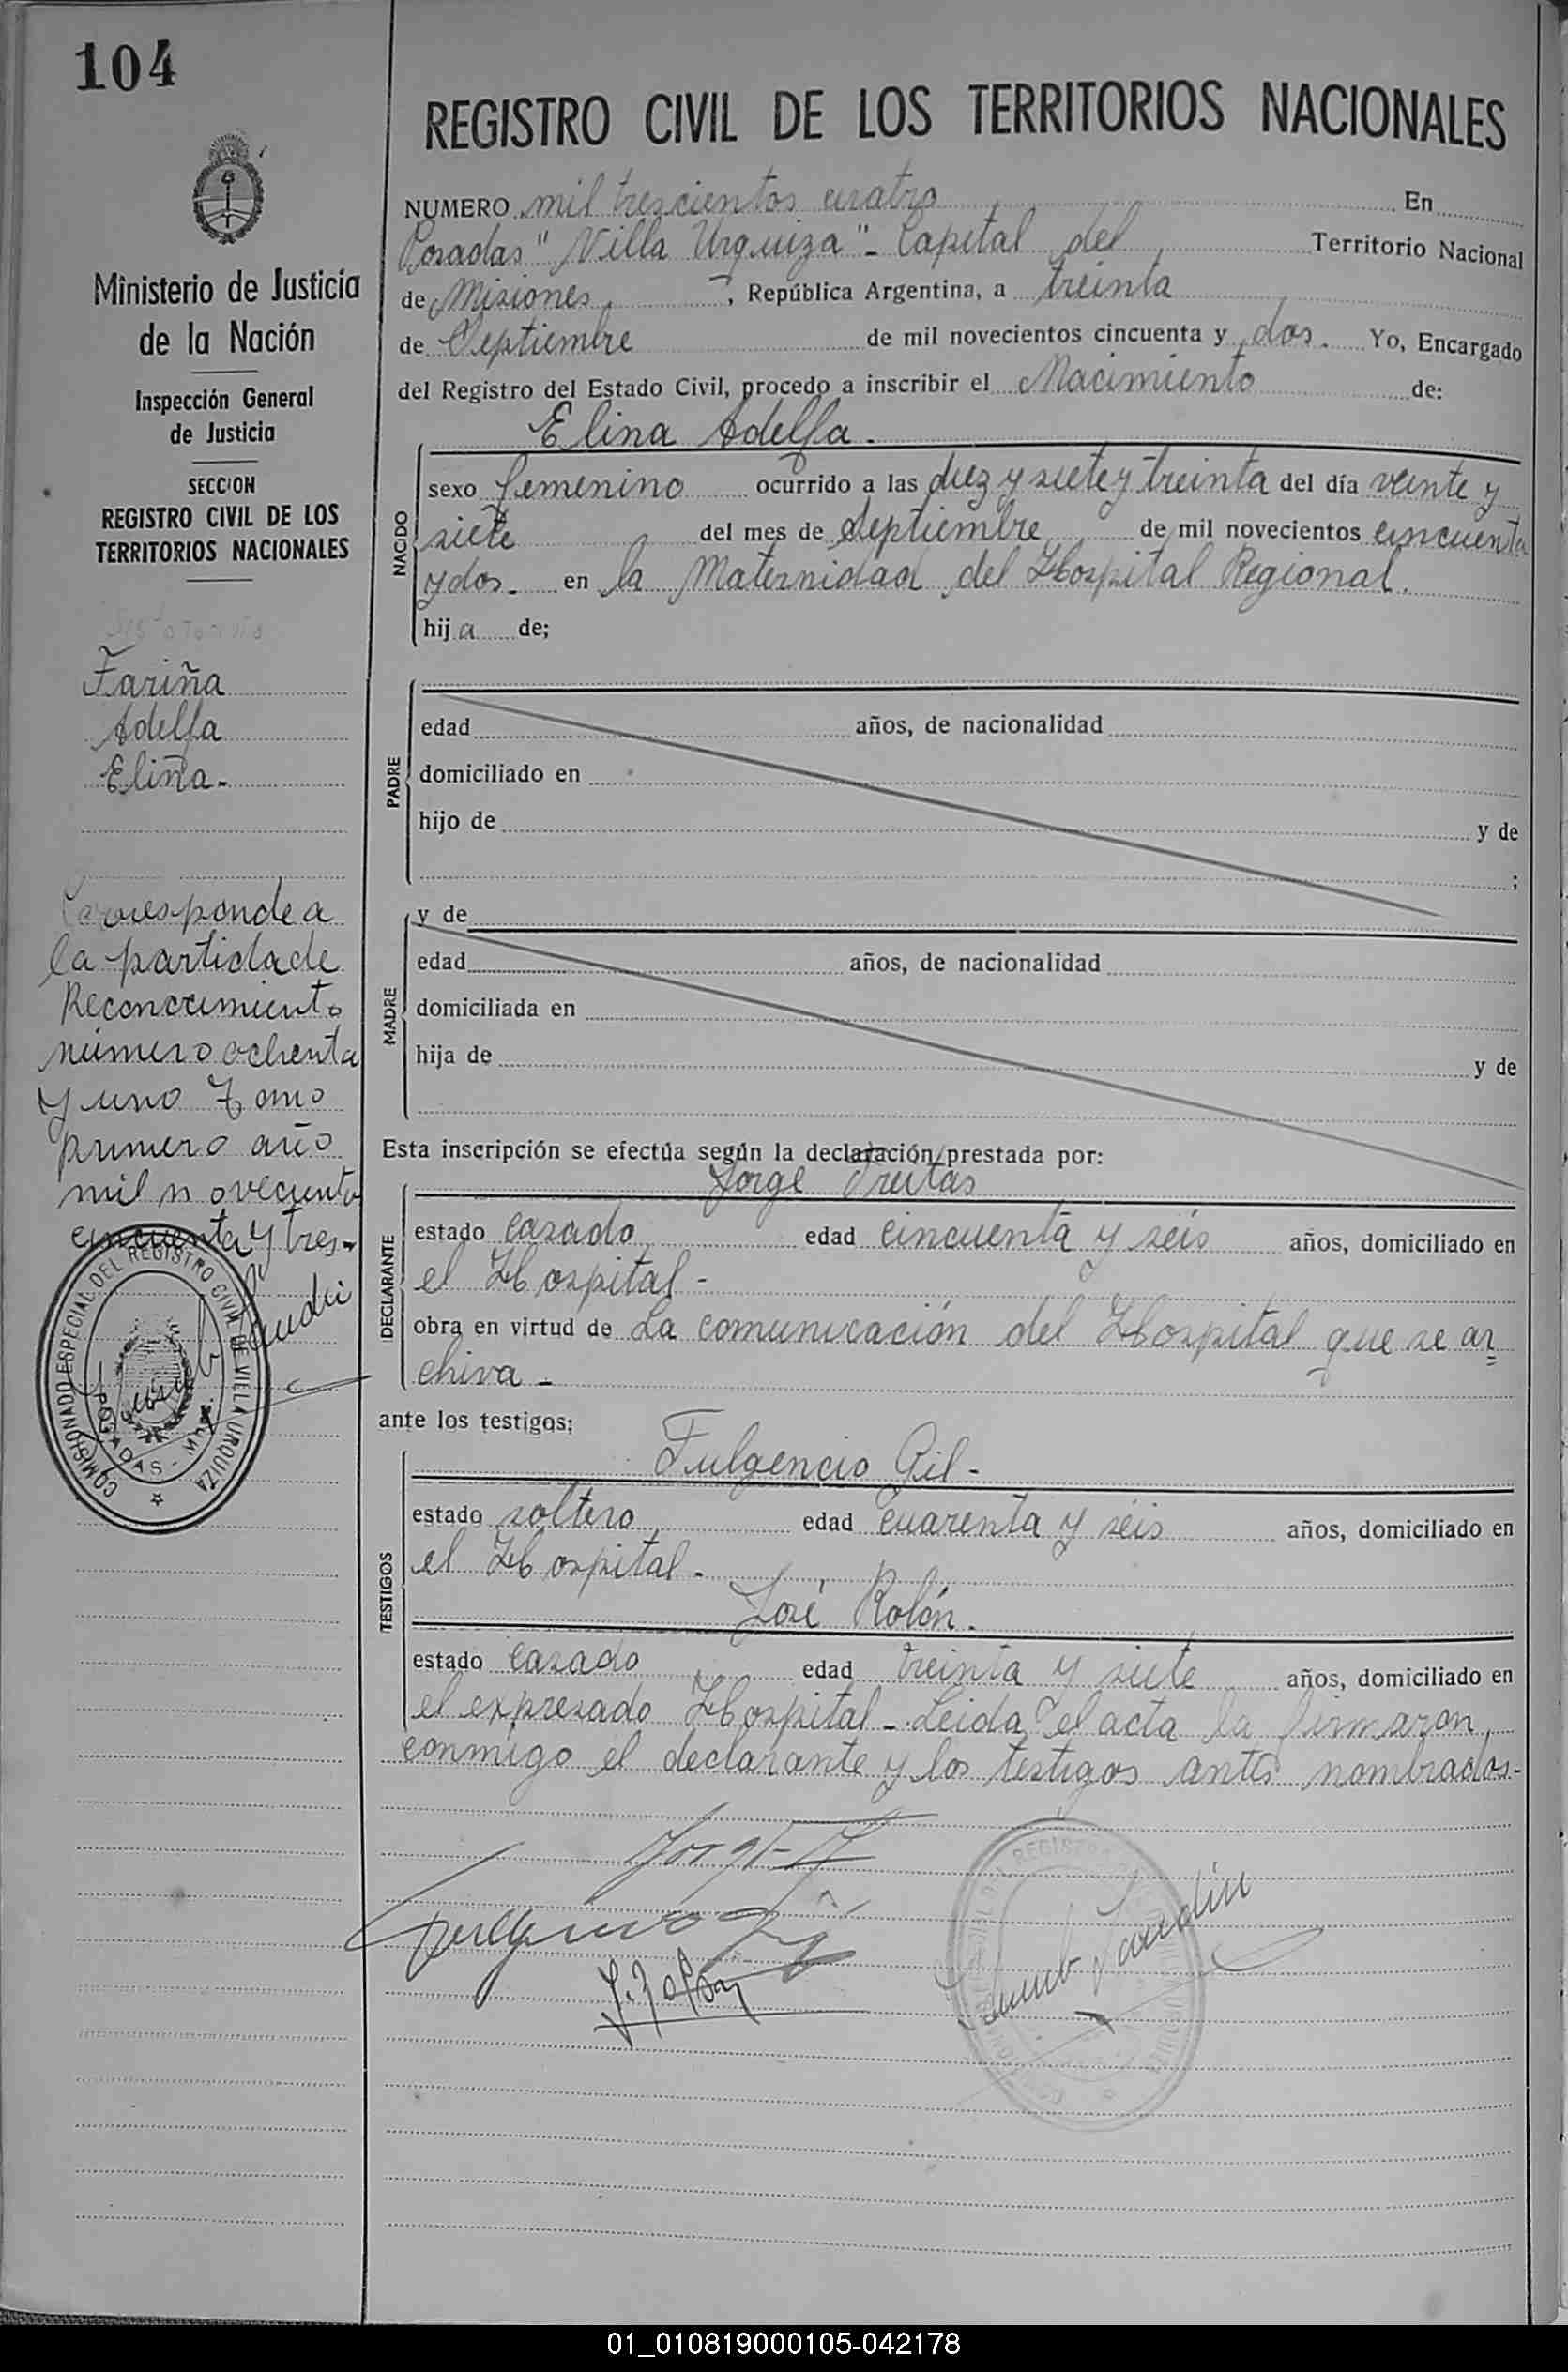 104
REGISTRO CIVIL DE LOS TERRITORIOS NACIONALES
Ministerio de Justicia
de la Nación
Inspección General
de Justicia
SECCION
REGISTRO CIVIL DE LOS
TERRITORIOS NACIONALES
Fariña
Adelfa
Eliña.-
Corresponde a
la partida de
Reconocimiento
número ochenta
y uno Tomo
primero año
mil novecientos
cincuenta y tres.-
COMISIONADO ESPECIAL DEL REGISTRO CIVIL DE VILLA URQUIZA
POSADAS - Mnes.
NUMERO mil trescientos cuatro En
Posadas "Villa Urquiza" - Capital del Territorio Nacional
de Misiones, República Argentina, a treinta
de Septiembre de mil novecientos cincuenta y dos. Yo, Encargado
del Registro del Estado Civil, procedo a inscribir el Nacimiento de:
Elina Adelfa.-
NACIDO
sexo femenino ocurrido a las diez y siete y treinta del día veinte y
siete del mes de Septiembre de mil novecientos cincuenta
y dos.- en la Maternidad del Hospital Regional.
hija de;
PADRE
edad años, de nacionalidad
domiciliado en
hijo de y de
;
MADRE
y de
edad años, de nacionalidad
domiciliada en
hija de y de
Esta inscripción se efectúa según la declaración prestada por:
Jorge Freitas
DECLARANTE
estado casado edad cincuenta y seis años, domiciliado en
el Hospital -
obra en virtud de La comunicación del Hospital que se ar=
chiva -
ante los testigos;
Fulgencio Gil -
TESTIGOS
estado soltero, edad cuarenta y seis años, domiciliado en
el Hospital -
José Rolón.-
estado casado edad treinta y siete años, domiciliado en
el expresado Hospital - Leida el acta la firmaron
conmigo el declarante y los testigos antes nombrados.-
01_010819000105-042178